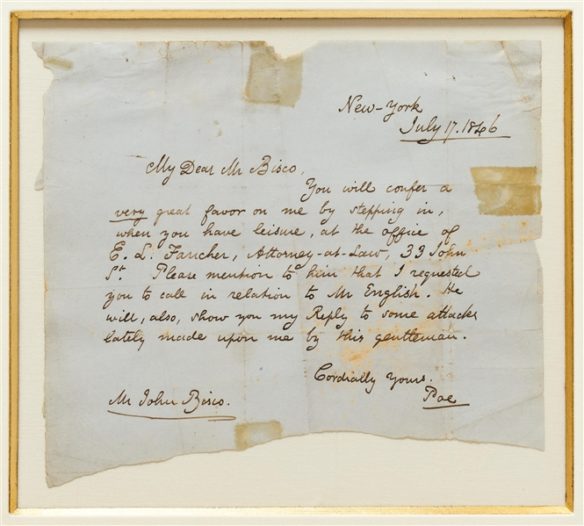 New-York
July 17. 1846
My Dear Mr Bisco,
You will confer a
very great favor on me by stepping in,
when you have leisure, at the office of
E. L. Fancher, Attorney-at-Law, 33 John
St. Please mention to him that I requested
you to call in relation to Mr English. He
will, also, show you my Reply to some attacks
lately made upon me by this gentleman.
Cordially Yours.
Poe
Mr John Bisco.